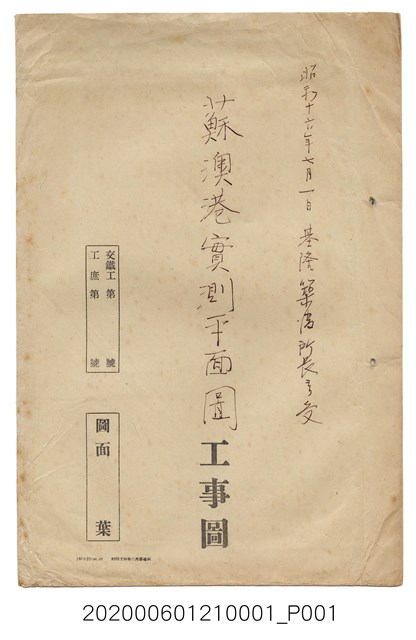 昭和十六年七月一日 基隆築港所長ヨリ受
蘇澳港實測平面圖
工事圖
交鐵工 第 號
工庶 第 號
圖面 葉
202000601210001_P001